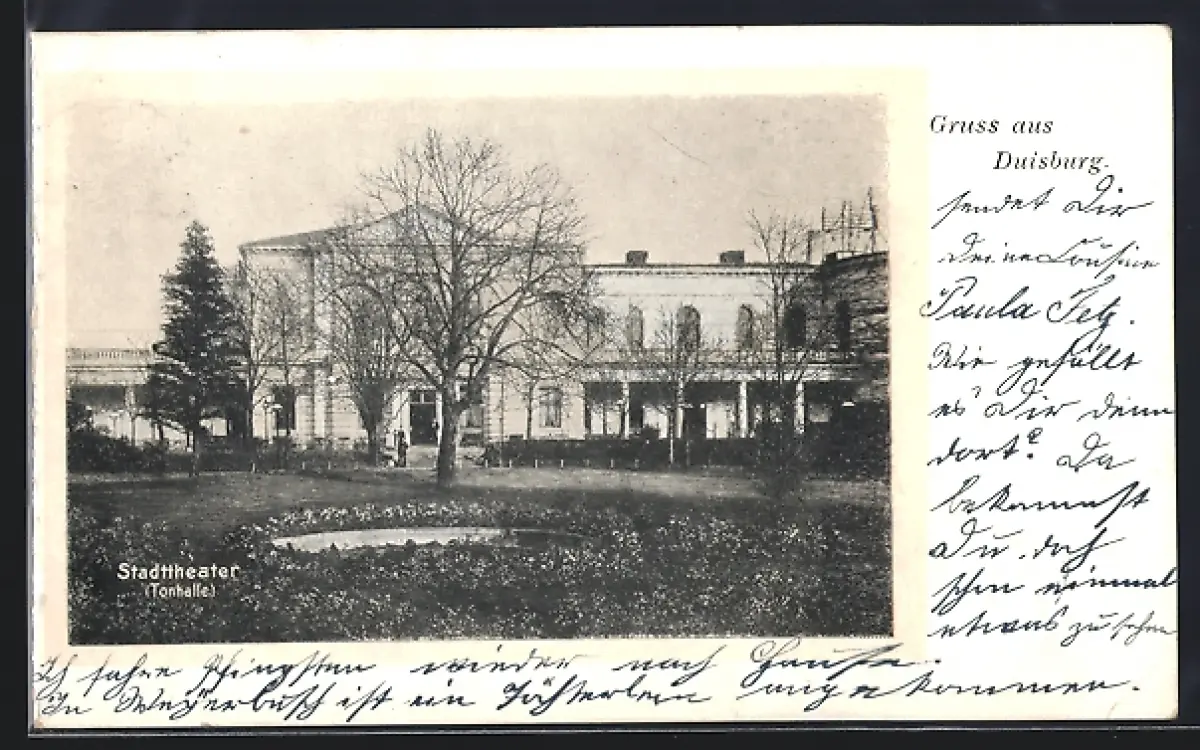 Gruss aus
Duisburg.
sendet Dir
Deine Cousine
Paula Fetz.
Wie gefällt
es Dir denn
dort? Da
bekommst
Du doch
schon einmal
etwas zu sehen
Stadttheater
(Tonhalle)
Ich fahre Pfingsten wieder nach Hause.
In Weyerbusch ist ein Töchterlein angekommen.